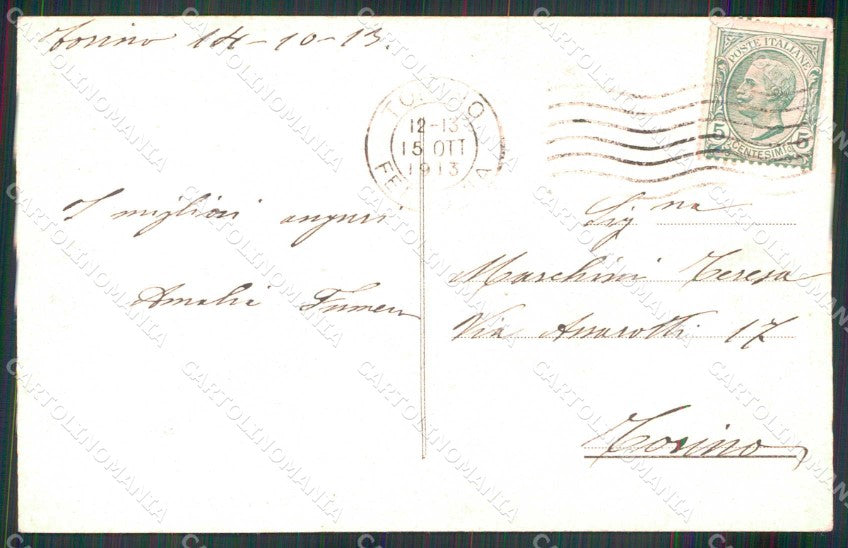 Torino 14-10-13.
TORINO
12-13
15 OTT
1913
FERROVIA
POSTE ITALIANE
5 CENTESIMI 5
I migliori auguri
Amalia
Sig na
Marchini Teresa
Via Assarotti 17
Torino
CARTOLINOMANIA